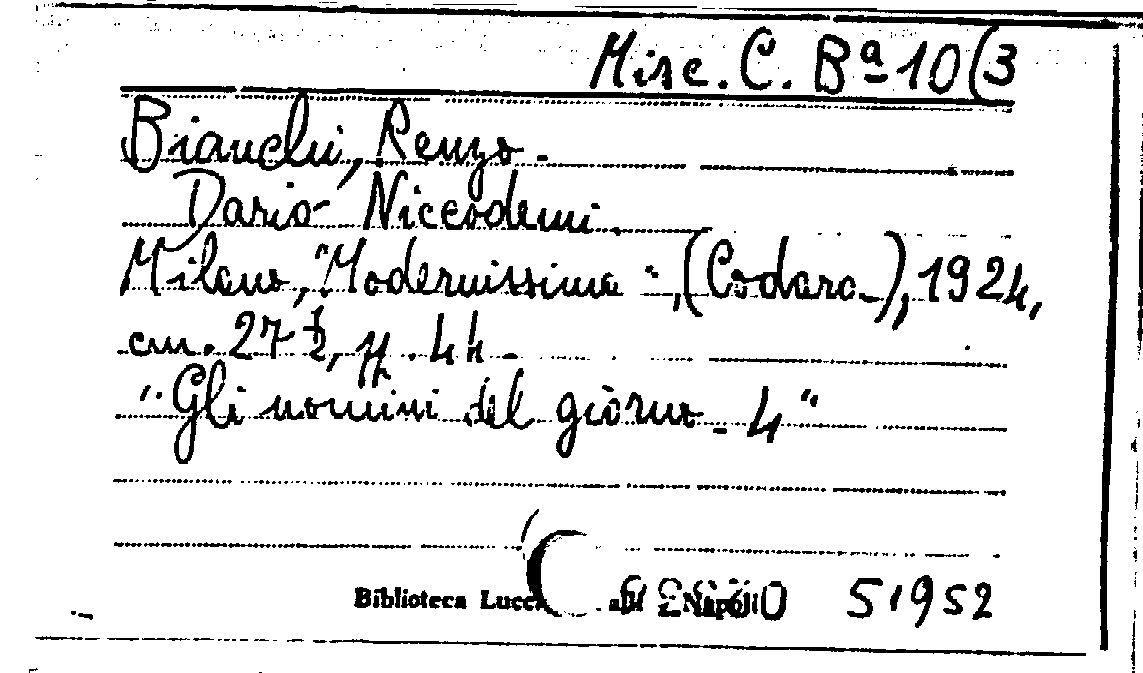 Misc. C. Bª 10(3
Bianchi, Renzo.
Dario Niccodemi.
Milano, "Modernissima", (Codara), 1924,
cm. 27 ½, pp. 44.
"Gli uomini del giorno - 4"
Biblioteca Napoli 51952